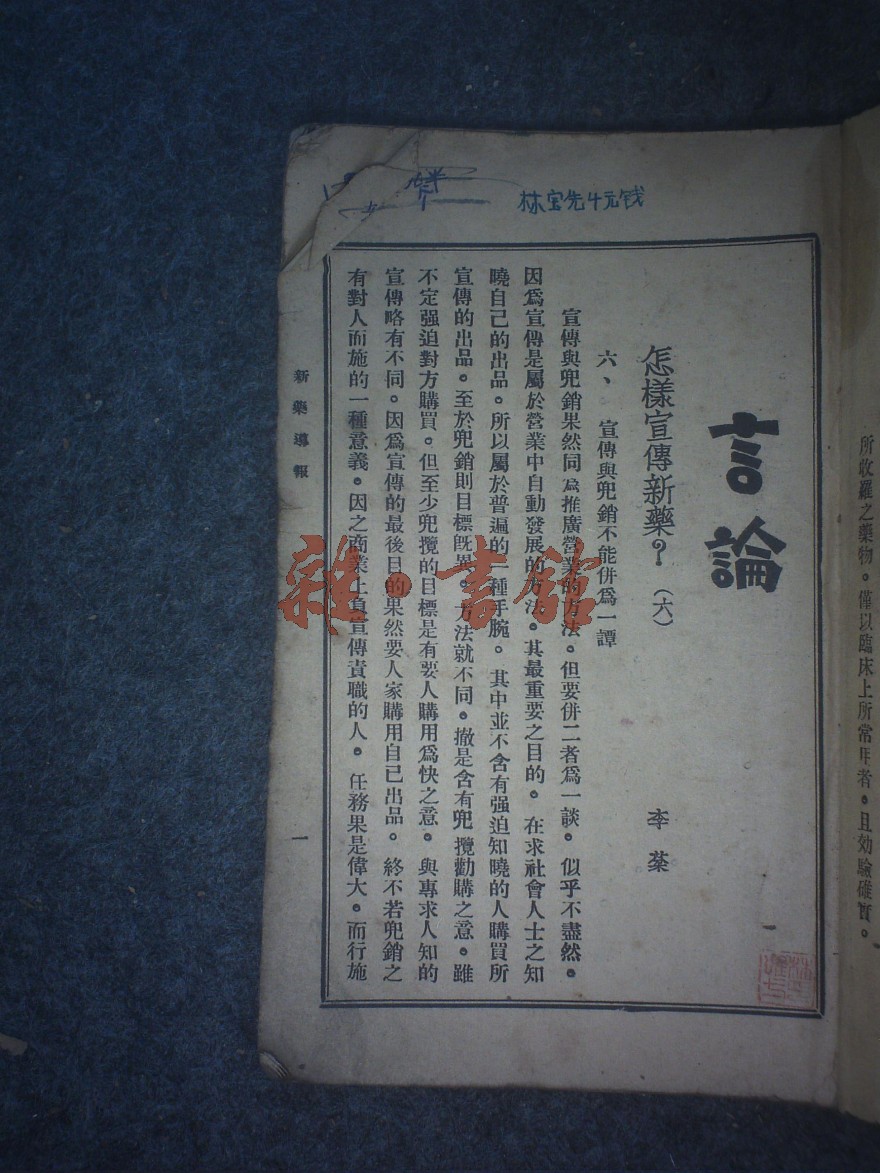 林宝先4元钱
所收羅之藥物。僅以臨床上所常用者。且効驗確實。
言論
一
怎樣宣傳新藥?(六)
李蕖
六、宣傳與兜銷不能併爲一譚
宣傳與兜銷果然同爲推廣營業的方法。但要併二者爲一談。似乎不盡然。
因爲宣傳是屬於營業中自動發展的方法。其最重要之目的。在求社會人士之知
曉自己的出品。所以屬於普遍的一種手腕。其中並不含有强迫知曉的人購買所
宣傳的出品。至於兜銷則目標旣異。方法就不同。撤是含有兜攬勸購之意。雖
不定强迫對方購買。但至少兜攬的目標是有要人購用爲快之意。與專求人知的
宣傳略有不同。因爲宣傳的最後目的果然要人家購用自己出品。終不若兜銷之
有對人而施的一種意義。因之商業上負宣傳責職的人。任務果是偉大。而行施
新藥導報
一
雜·書館